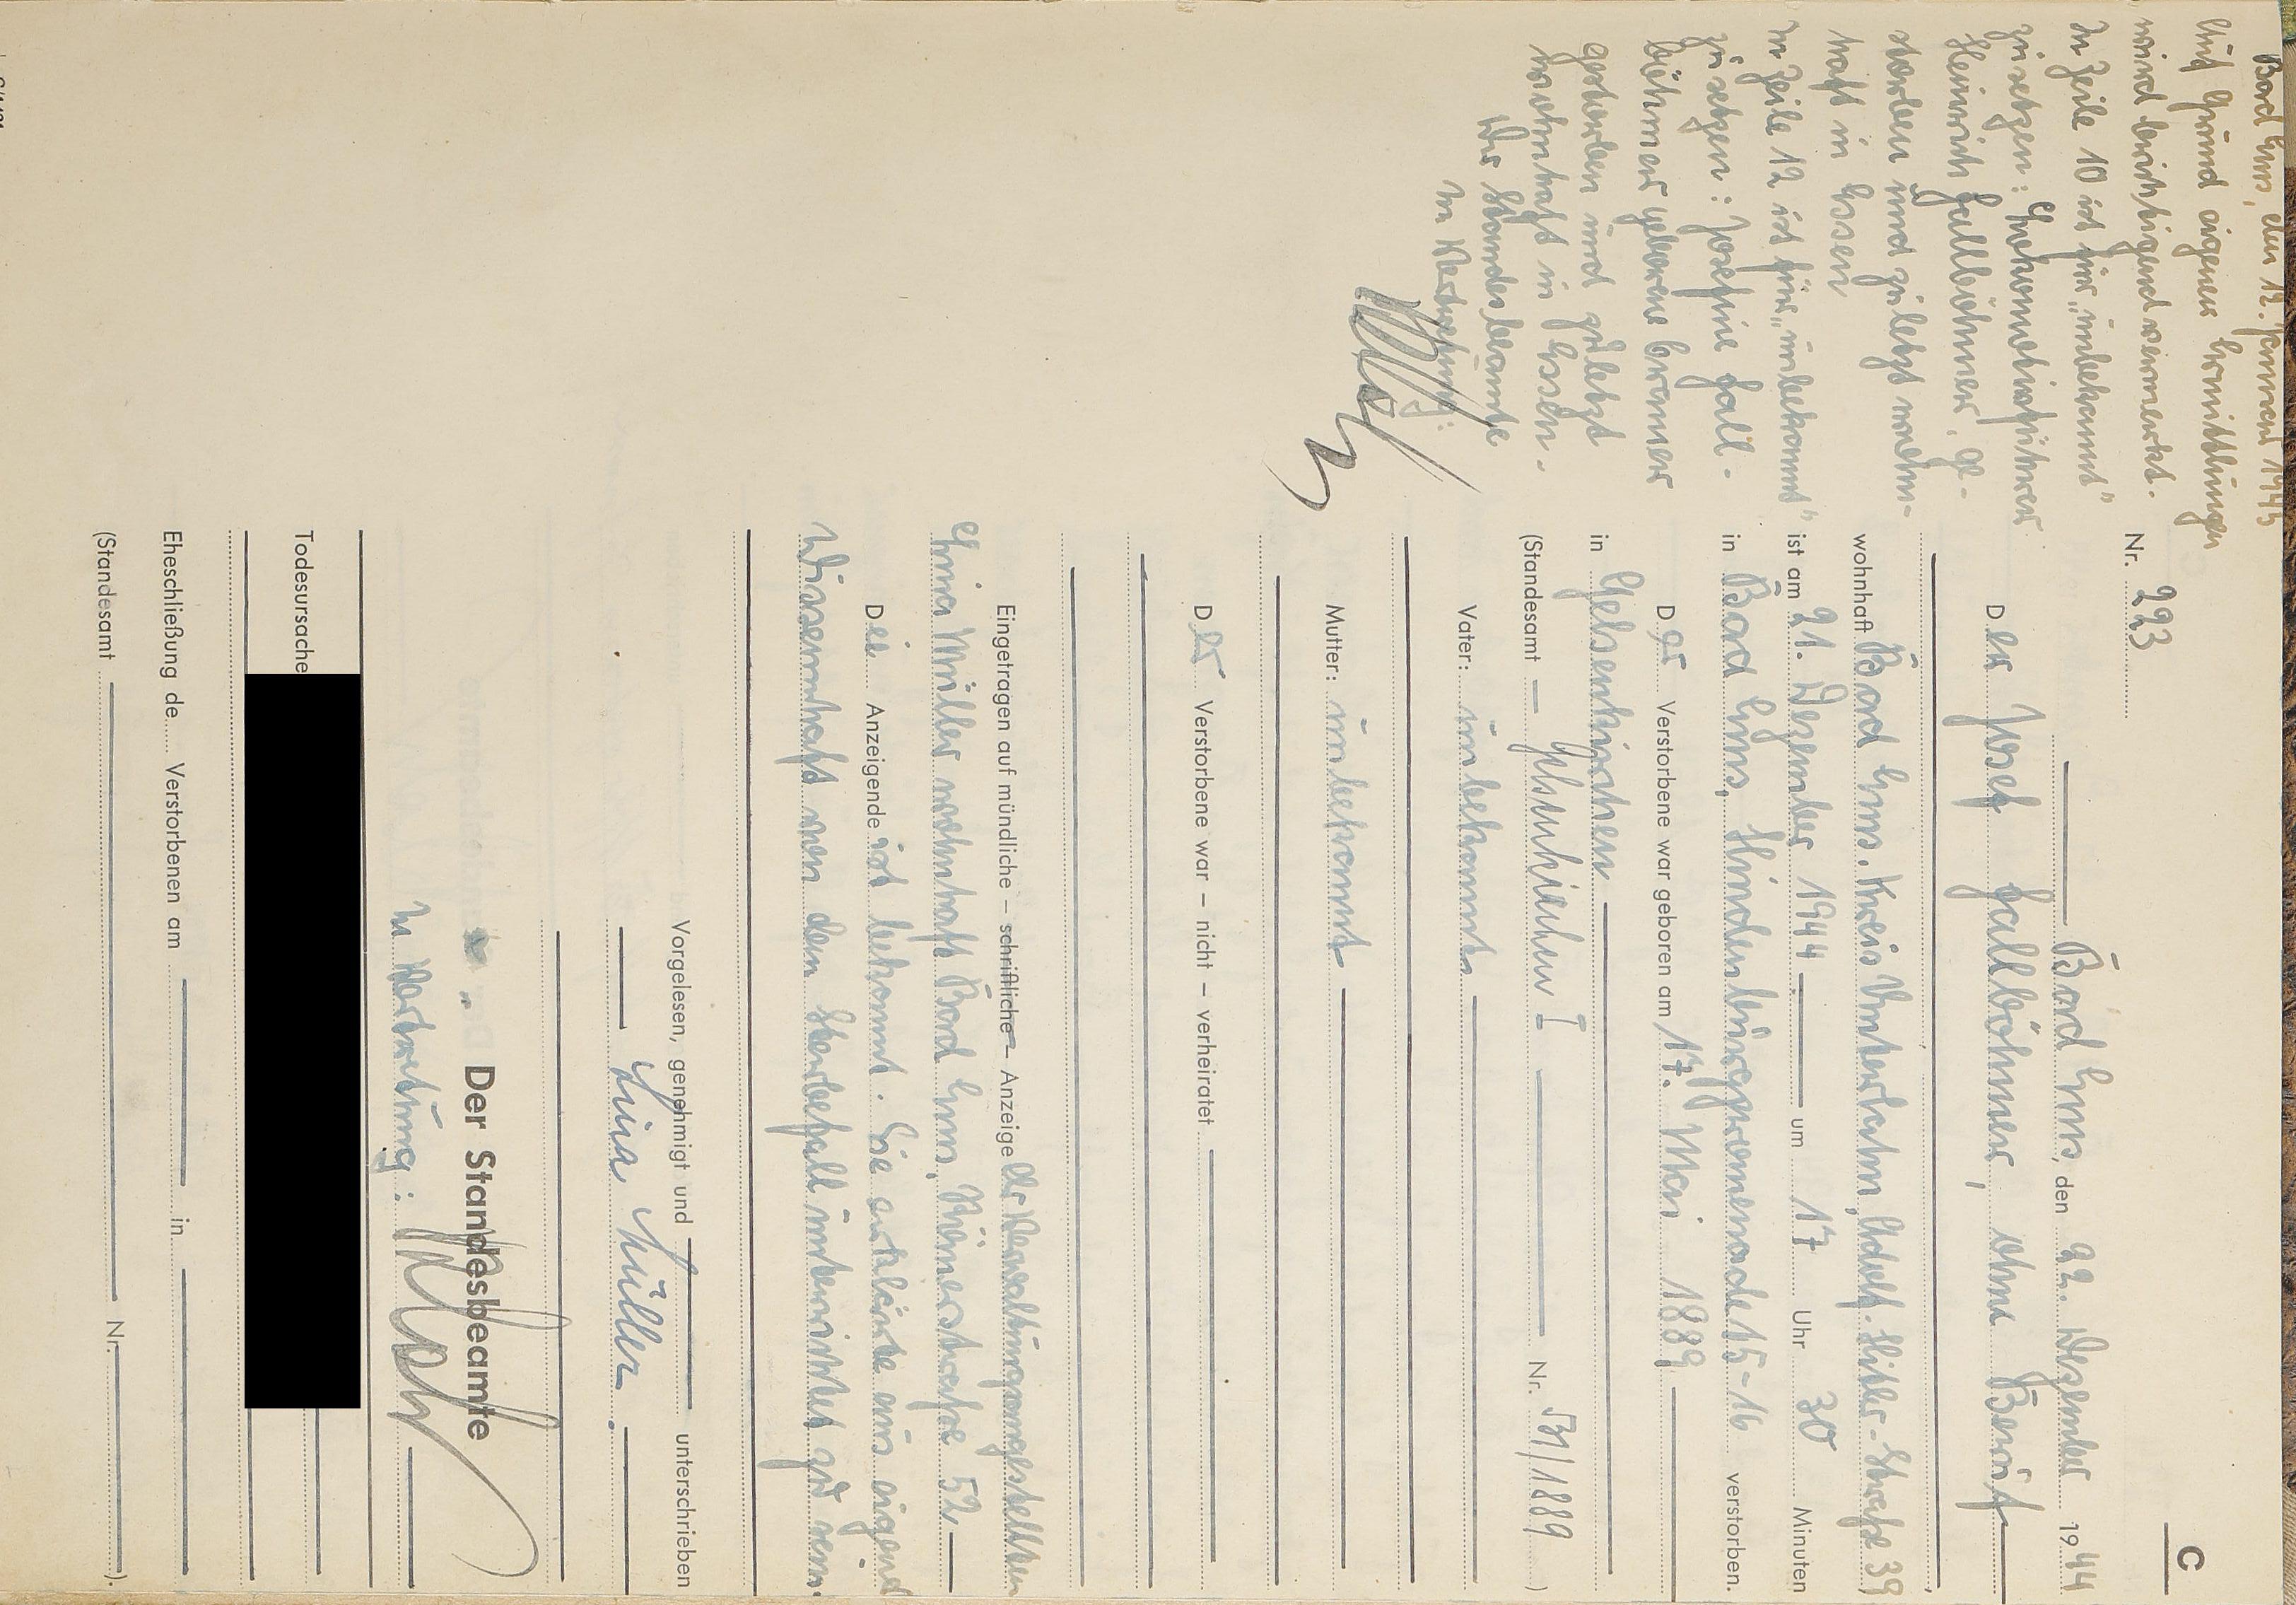 C
Nr. 223
Bad Ems, den 22. Dezember 1944
Der Josef Fallböhmer, ohne Beruf
wohnhaft Bad Ems. Kreis Unterlahn, Adolf-Hitler-Straße 39
ist am 21. Dezember 1944 um 17 Uhr 30 Minuten
in Bad Ems, Hindenburgpromenade 15-16 verstorben.
Der Verstorbene war geboren am 17. Mai 1889
in Gelsenkirchen
(Standesamt Gelsenkirchen I Nr. 531/1889)
Vater: unbekannt
Mutter: unbekannt
Der Verstorbene war – nicht – verheiratet
Eingetragen auf mündliche – schriftliche – Anzeige der Verwaltungsangestellten
Lina Müller wohnhaft Bad Ems, Römerstraße 52
Die Anzeigende ist bekannt. Sie erklärte aus eigener
Wissenschaft von dem Sterbefall unterrichtet zu sein.
Vorgelesen, genehmigt und unterschrieben
Lina Müller.
Der Standesbeamte
In Vertretung:
Todesursache
Eheschließung de Verstorbenen am in
(Standesamt Nr. ).
Bad Ems, den 12. Januar 1945
Auf Grund eigener Ermittlungen
wird berichtigend vermerkt.
In Zeile 10 ist für „unbekannt"
zu setzen: Lokomotivführer
Heinrich Fallböhmer, ge-
storben und zuletzt wohn-
haft in Essen
In Zeile 12 ist für „unbekannt"
zu setzen: Josefine Fall-
böhmer geborene Cramer
gestorben und zuletzt
wohnhaft in Essen.
Der Standesbeamte
In Vertretung: